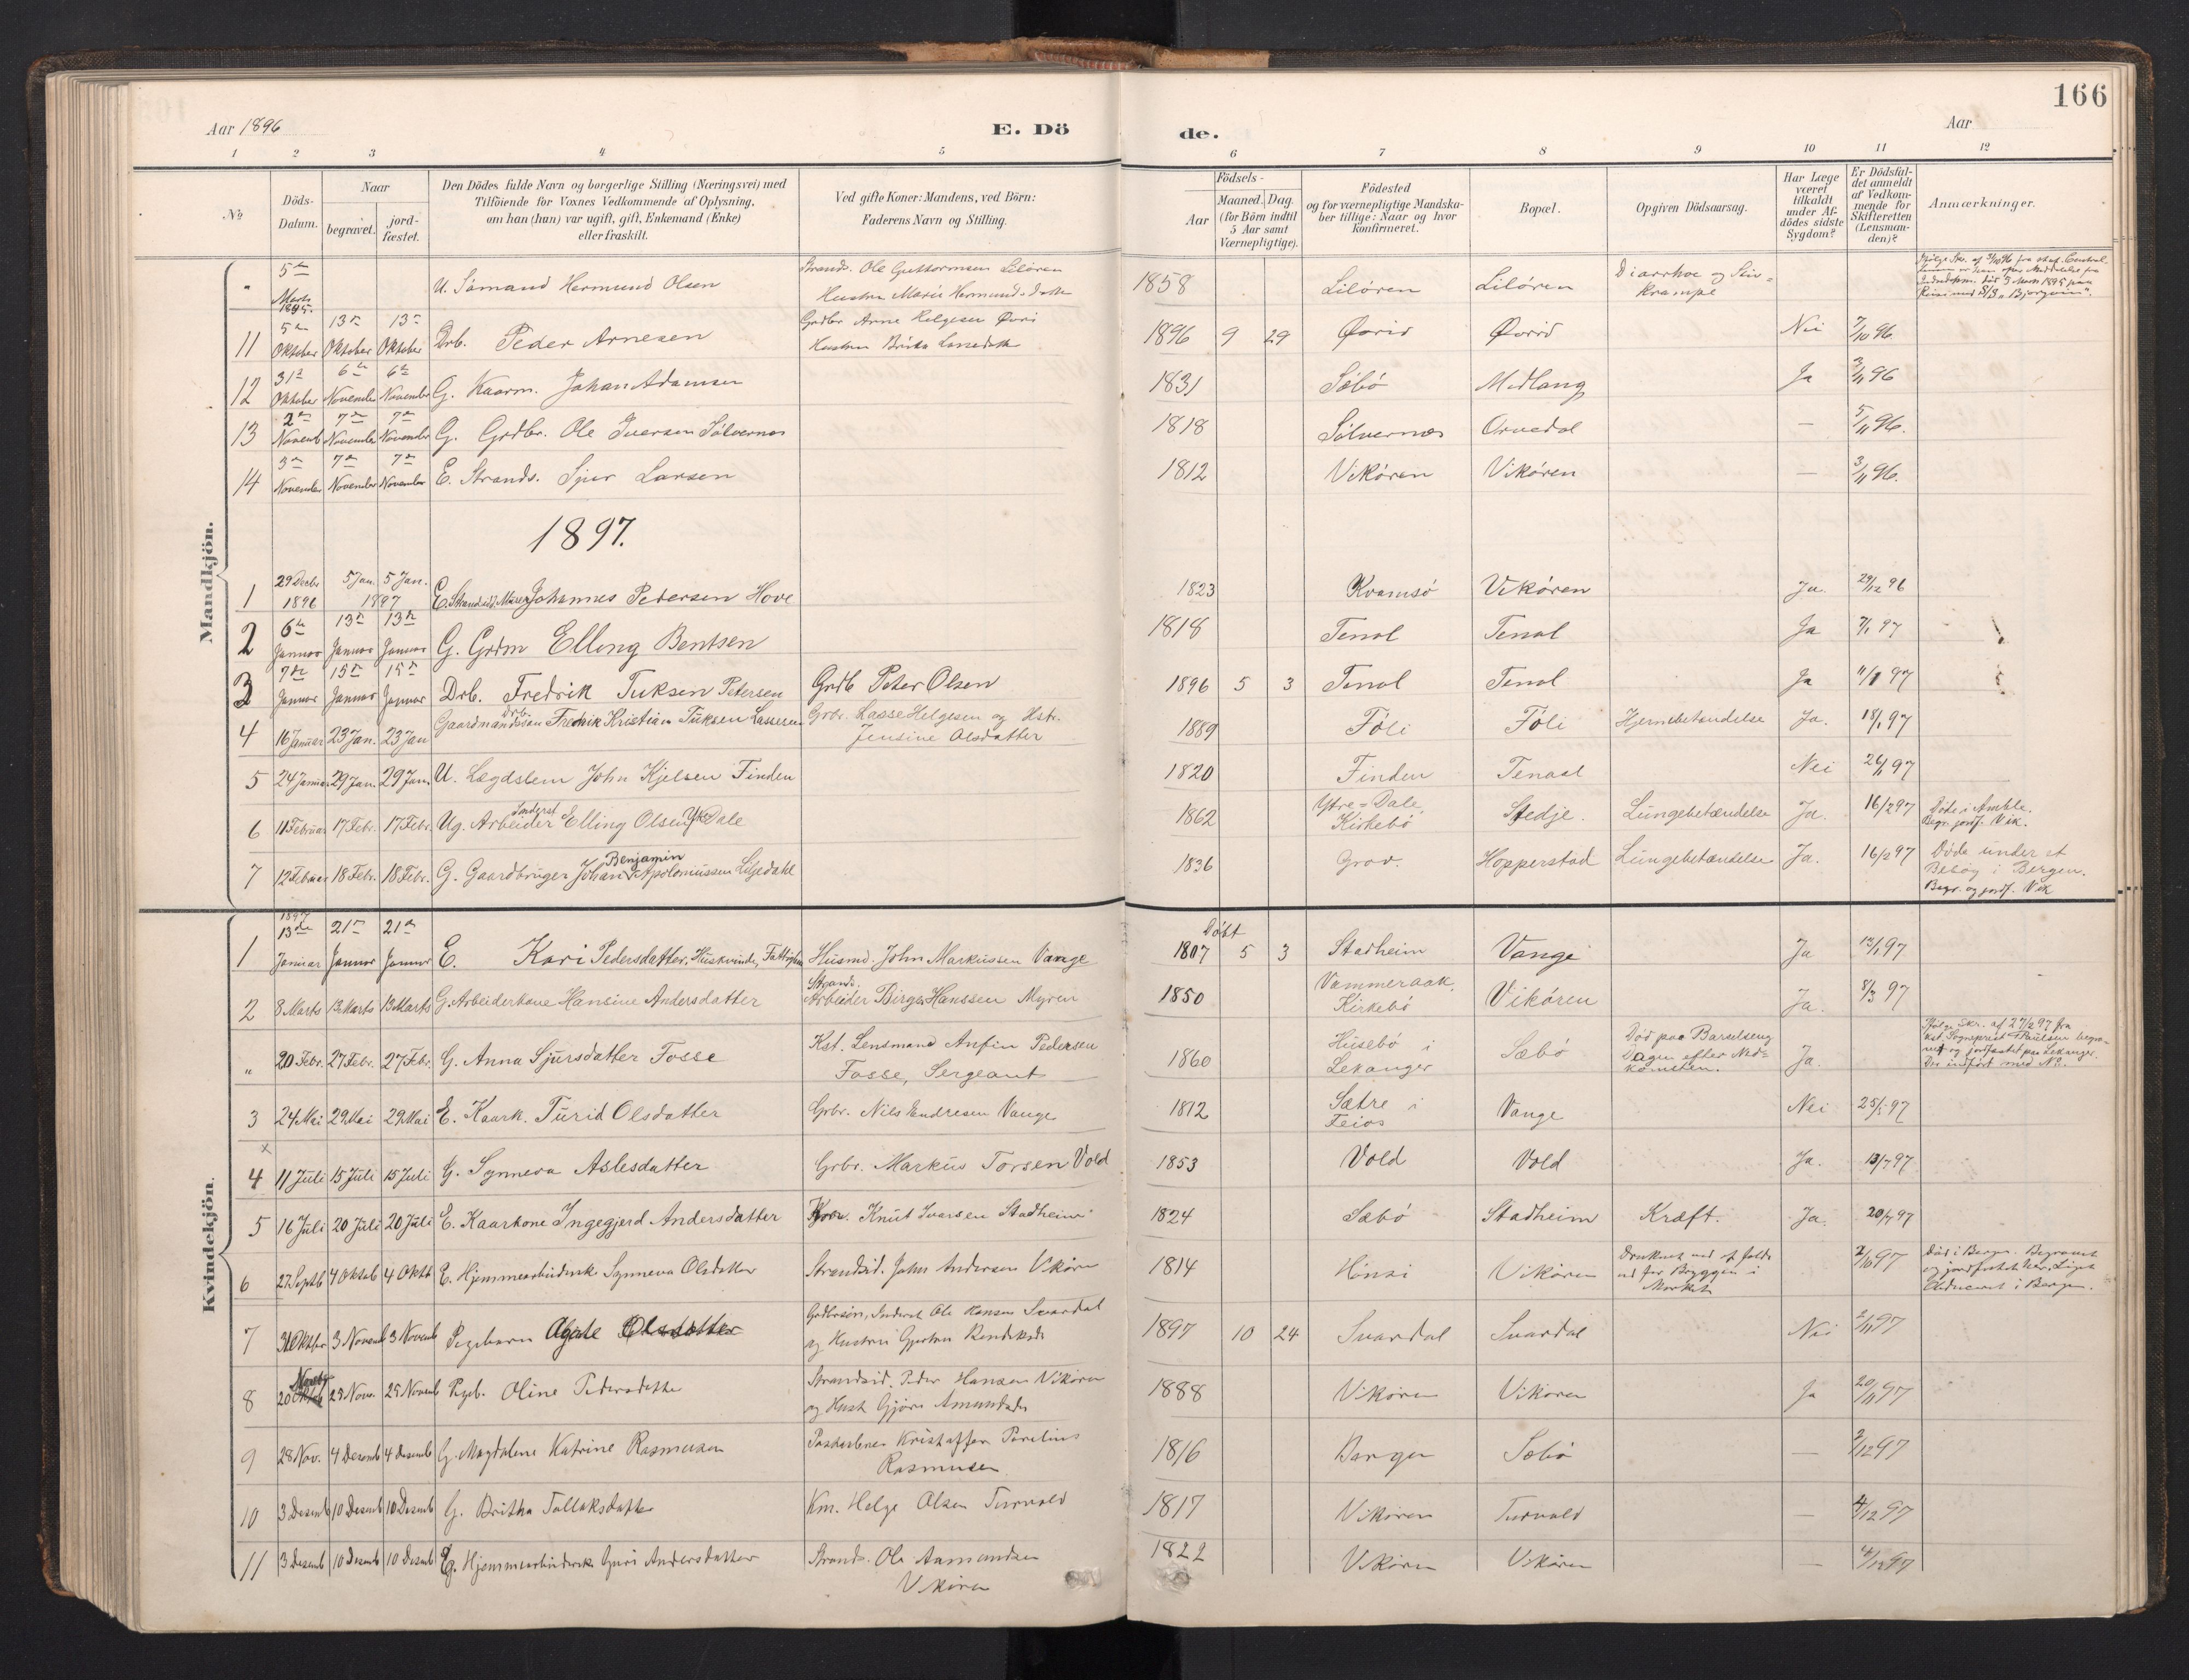 166
Aar 1896
E. Dö
de.
Aar
1 2 3 4 5 6 7 8 9 10 11 12
No
Döds-
Datum.
Naar
begravet.
jord-
fæstet.
Den Dödes fulde Navn og borgerlige Stilling (Næringsvei) med
Tilföiende for Voxnes Vedkommende af Oplysning,
om han (hun) var ugift, gift, Enkemand (Enke)
eller fraskilt.
Ved gifte Koner: Mandens, ved Börn:
Faderens Navn og Stilling.
Födsels-
Aar
Maaned. Dag.
(for Börn indtil
5 Aar samt
Værnepligtige).
Födested
og for værnepligtige Mandska-
ber tillige: Naar og hvor
konfirmeret.
Bopæl.
Opgiven Dödsaarsag.
Har Læge
været
tilkaldt
under Af-
dödes sidste
Sygdom?
Er Dödsfal-
det anmeldt
af Vedkom-
mende for
Skifteretten
(Lensman-
den)?
Anmærkninger.
Mandkjön.
" 5te Marts 1895. U. Sömand Hermund Olsen Strands. Ole Guttormsen Liløren 1858 Liløren Liløren Diarrhoe og
Hustru Marie Hermundsdatter Krampe
11 5te Oktober 13de Oktober 13de Oktober Drb. Peder Arnesen Grdbr Arne Helgesen Øvri 1896 9 29 Øvrid Øvrid Nei 7/10 96
Hustru Brita Larsdatter
12 31te Oktober 6te November 6te November G. Kaarm. Johan Adamsen 1831 Sæbö Midlang Ja 3/11 96
13 2den Novemb 7de November 7de November G. Grdbr. Ole Iversen Sølvernes 1818 Sølvernes Orvedal — 5/11 96.
14 3de November 7de November 7de November E. Strands. Sjur Larsen 1812 Vikøren Vikøren — 3/11 96.
1897.
1 29 Decbr 1896 5 Jan. 5 Jan. 1897 E. Strandsid. Johannes Pedersen Hove 1823 Kvamsö Vikøren Ja. 29/12 96
2 6te Januar 13de Januar 13de Januar G. Grdm Elling Bentsen 1818 Tenol Tenol Ja 7/1 97
3 7de Januar 15de Januar 15de Januar Drb. Fredrik Tuksen Petersen Grdb Peter Olsen 1896 5 3 Tenol Tenol Ja 11/1 97
4 16 Januar 23 Jan. 23 Jan Gaardmandssön Drb. Fredrik Kristian Tuksen Lassesen Grbr. Lasse Helgesen og Hstr. 1889 Föli Föli Hjernebetændelse Ja. 18/1 97
Jensine Olsdatter
5 24 Januar 29 Jan. 29 Jan. U. Lægdslem John Kjelsen Finden 1820 Finden Tenaal Nei 26/1 97
6 11 Februar 17 Febr. 17 Febr. Ug. Arbeider Inderst Elling Olsen Ytre Dale 1862 Ytre-Dale, Kirkebö Stedje. Lungebetændelse Ja. 16/2 97 Döde i Amble.
Begr. jordf. Vik.
7 12 Februar 18 Febr. 18 Febr. G. Gaardbruger Johan Benjamin Apoloniussen Liljedahl 1836 Grov. Hopperstad Lungebetændelse Ja. 16/2 97 Döde under et
Besög i Bergen.
Begr. og jordf. Vik
Kvindekjön.
1 1897 13de Januar 21de Januar 21de Januar E. Kari Pedersdatter, Huskvinde, Husmd. John Markussen Vange Döbt 1807 5 3 Stadheim Vange Ja 13/1 97
2 8 Marts 13 Marts 13 Marts G. Arbeiderkone Hansine Andersdatter Strands. Arbeider Birger Hanssen Myren 1850 Vammeraak, Kirkebö Vikören Ja. 8/3 97
" 20 Febr. 27 Febr. 27 Febr. G. Anna Sjursdatter Fosse Kst. Lensmand Anfin Pedersen 1860 Husebö i Sæbö Död paa Barselseng Ja.
Fosse, Sergeant Lekanger Dagen efter Ned-
komsten.
Ifølge Skr. af 27/2 97 fra
kst. Sogneprest Paulsen begra-
vet og jordfæstet paa Lekanger.
Der indført med No.
3 24 Mai 29 Mai 29 Mai E. Kaark. Turid Olsdatter Grbr. Nils Endresen Vange 1812 Sætre i Feios Vange Nei 25/5 97
x
4 11 Juli 15 Juli 15 Juli G. Synneva Aslesdatter Grbr. Markus Torsen Vold 1853 Vold Vold Ja. 13/7 97
5 16 Juli 20 Juli 20 Juli E. Kaarkone Ingegjerd Andersdatter Knut Ivarsen Stadheim 1824 Sæbö Stadheim Kræft. Ja. 20/7 97
6 27 Septb 4 Oktob 4 Oktb E. Hjemmearbeiderske Synneva Olsdatter Strandsid. John Andersen Vikøren 1814 Hønsi Vikøren Druknet ved at falde 2/10 97 Död i Bergen. Begravet
ud for Bryggen i og jordfæstet her. Liget
Mørket obduceret i Bergen.
7 31 Oktbr 3 Novemb 3 Novemb Pigebarn Agate Olsdatter Grdbrsön, Inderst Ole Hansen Svardal 1897 10 24 Svardal Svardal Nei 2/11 97
og Hustru Gjertru Bendiksdtr
8 20 Novbr 25 Nov. 25 Novemb Pigeb. Oline Pedersdatter Strandsid. Peder Hansen Vikøren 1888 Vikøren Vikøren Ja 20/11 97
og Hust Gjøri Amundsdtr
9 28 Nov. 4 Desemb 4 Desemb G. Magdalene Katrine Rasmusen Kristoffer 1816 Bergen Sæbö — 2/12 97
Rasmusen
10 3 Desemb 10 Desemb 10 Desemb G. Britha Tollaksdatter Km. Helge Olsen Turvold 1817 Vikøren Turvold — 4/12 97
11 3 Desemb 10 Desemb 10 Desemb Eg. Hjemmearbeiderske Guri Andersdatter Strands. Ole Aamundsen 1822 Vikøren Vikøren — 4/12 97
Vikøren